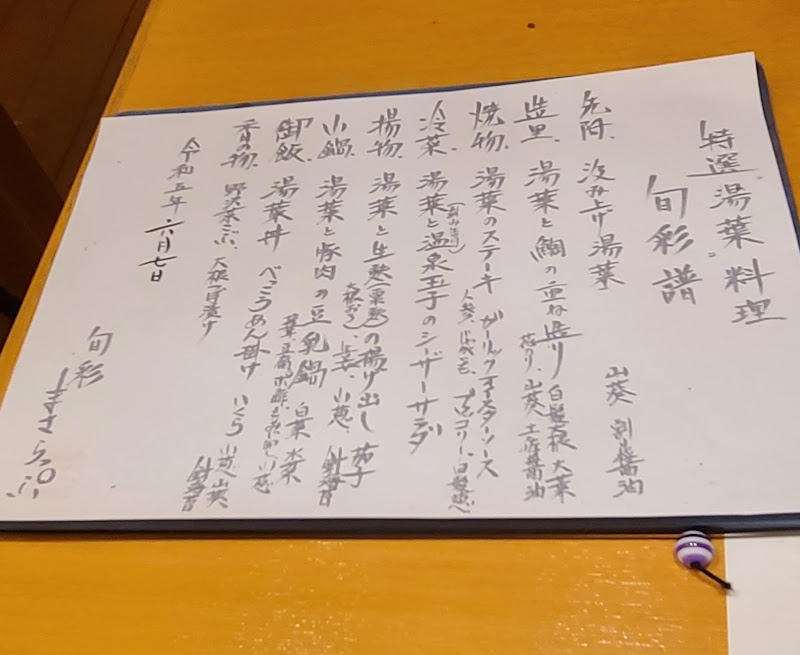 特選湯葉料理
旬彩譜
先附、汲み上げ湯葉
山葵 割醤油
造里、湯葉と鯛の重ね造り 白髪大根 大葉
山葵 土佐醤油
焼物、湯葉のステーキ ガーリックオイスターソース
人参、じゃが芋、ブロッコリー、白髪葱
冷菜、湯葉と温泉玉子のシーザーサラダ
揚物、湯葉と生麩(粟麩)の揚げ出し 茄子
大根おろし、生姜、小葱、針海苔
小鍋、湯葉と豚肉の豆乳鍋 白菜 水菜
豆腐 小葱
御飯、湯葉丼 べっこうあん掛け いくら
山葵
針海苔
香の物、野沢菜 大根
令和五年 六月七日
旬彩